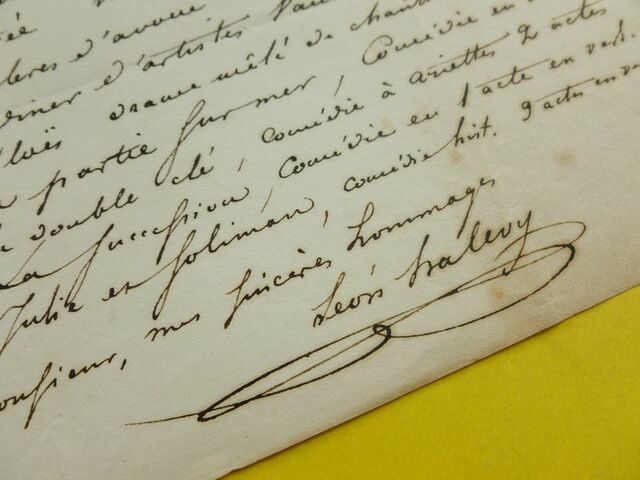 d'avoué
diner d'artistes
drame mêlé de chant
partie sur mer, Comédie en
double clé, comédie à ariettes 2 actes
La Succession, comédie en 1 acte en vers.
Julie et Soliman, comédie hist. 3 actes en
monsieur, mes sincères hommages
Léon halevy